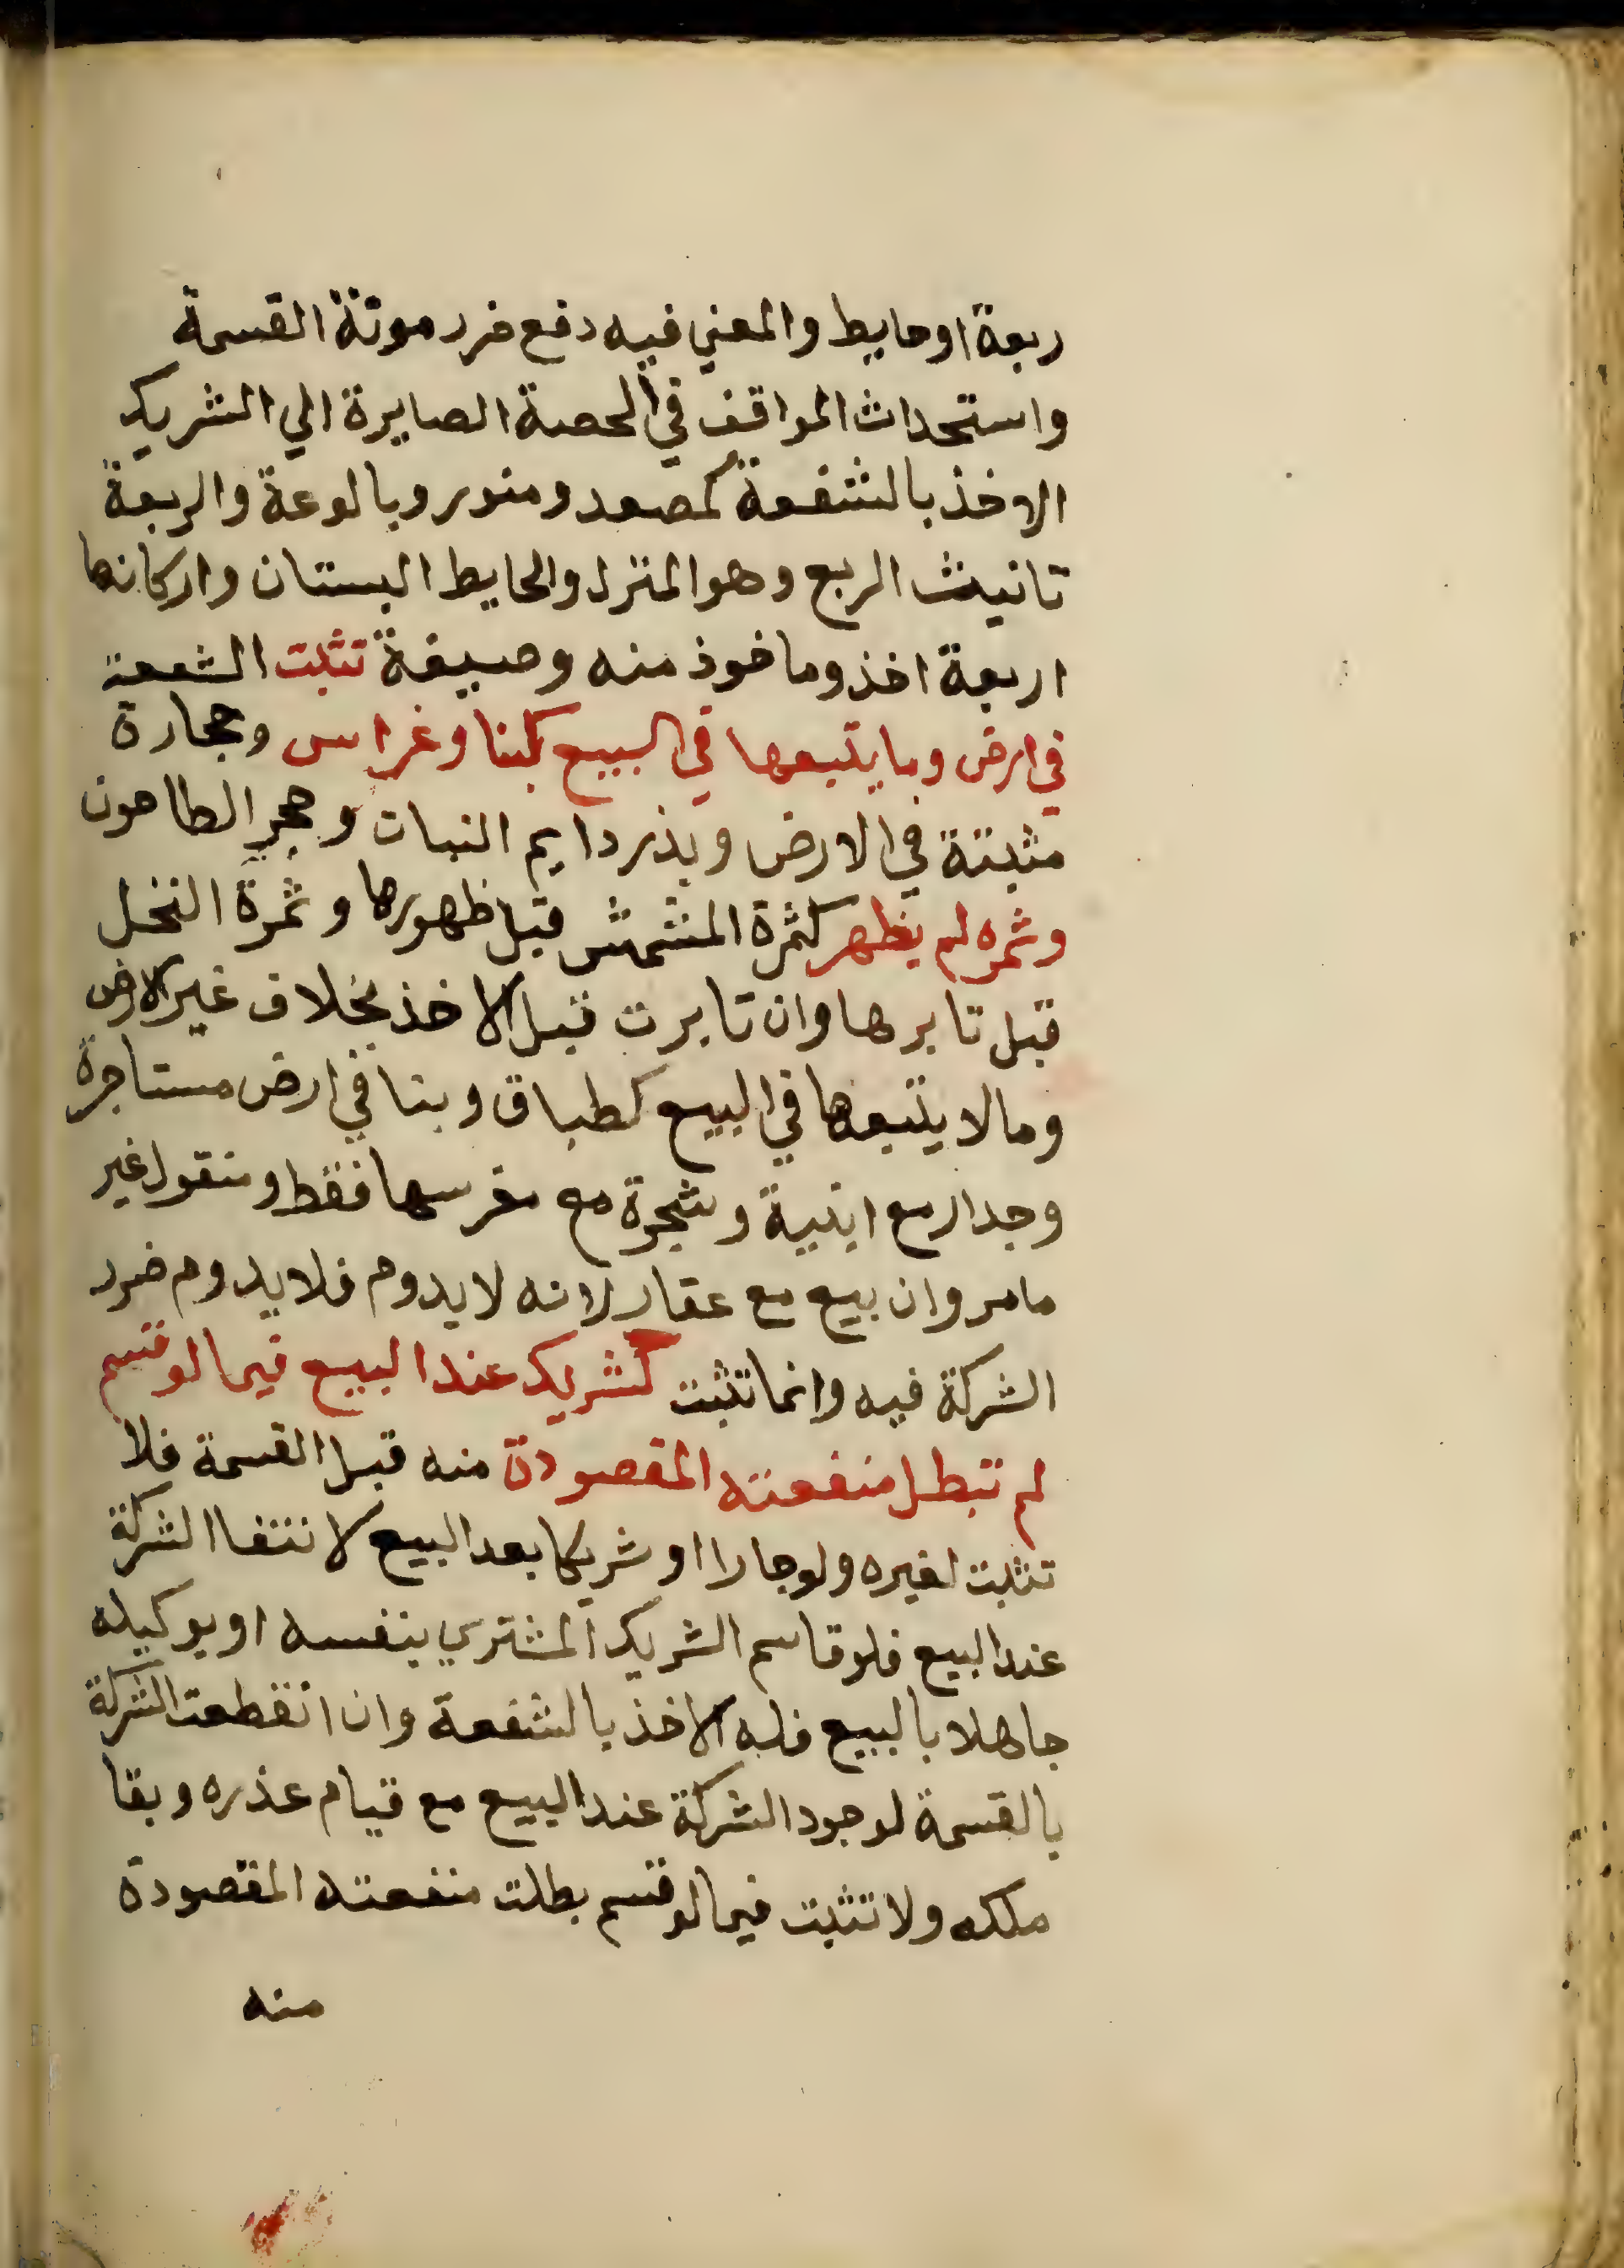 ربعة او حايط والمعني فيه دفع ضرر مونة القسمة
واستحداث المواقف في الحصة الصايرة الي الشريك
الاخذ بالشفعة كمصعد ومنور وبالوعة والربعة
تانيث الربع وهو المنزل والحايط البستان واركانها
اربعة اخذ وماخوذ منه وصيغة تثبت الشفعة
في ارض وما يتبعها في البيع كبنا وغراس وحجارة
مثبتة في الارض وبذر دايم النبات وحجر الطاحون
وثمره لم يظهر كثمرة المشمش قبل ظهورها وثمرة النخل
قبل تابرها وان تابرت قبل الاخذ بخلاف غير الارض
وما لا يتبعها في البيع كطباق وبنا في ارض مستاجرة
وجدار مع ابنية وشجرة مع مغرسها فقط ومنقول غير
مامر وان بيع مع عقار لانه لا يدوم فلا يدوم ضرر
الشركة فيه وانما تثبت كشريك عند البيع فيما لو قسم
لم تبطل منفعته المقصودة منه قبل القسمة فلا
تثبت لغيره ولو جارا او شريكا بعد البيع لانتفا الشركة
عند البيع فلو قاسم الشريك المشتري بنفسه او بوكيله
جاهلا بالبيع فله الاخذ بالشفعة وان انقطعت الشركة
بالقسمة لوجود الشركة عند البيع مع قيام عذره وبقا
ملكه ولا تثبت فيما لو قسم بطلت منفعته المقصودة
منه